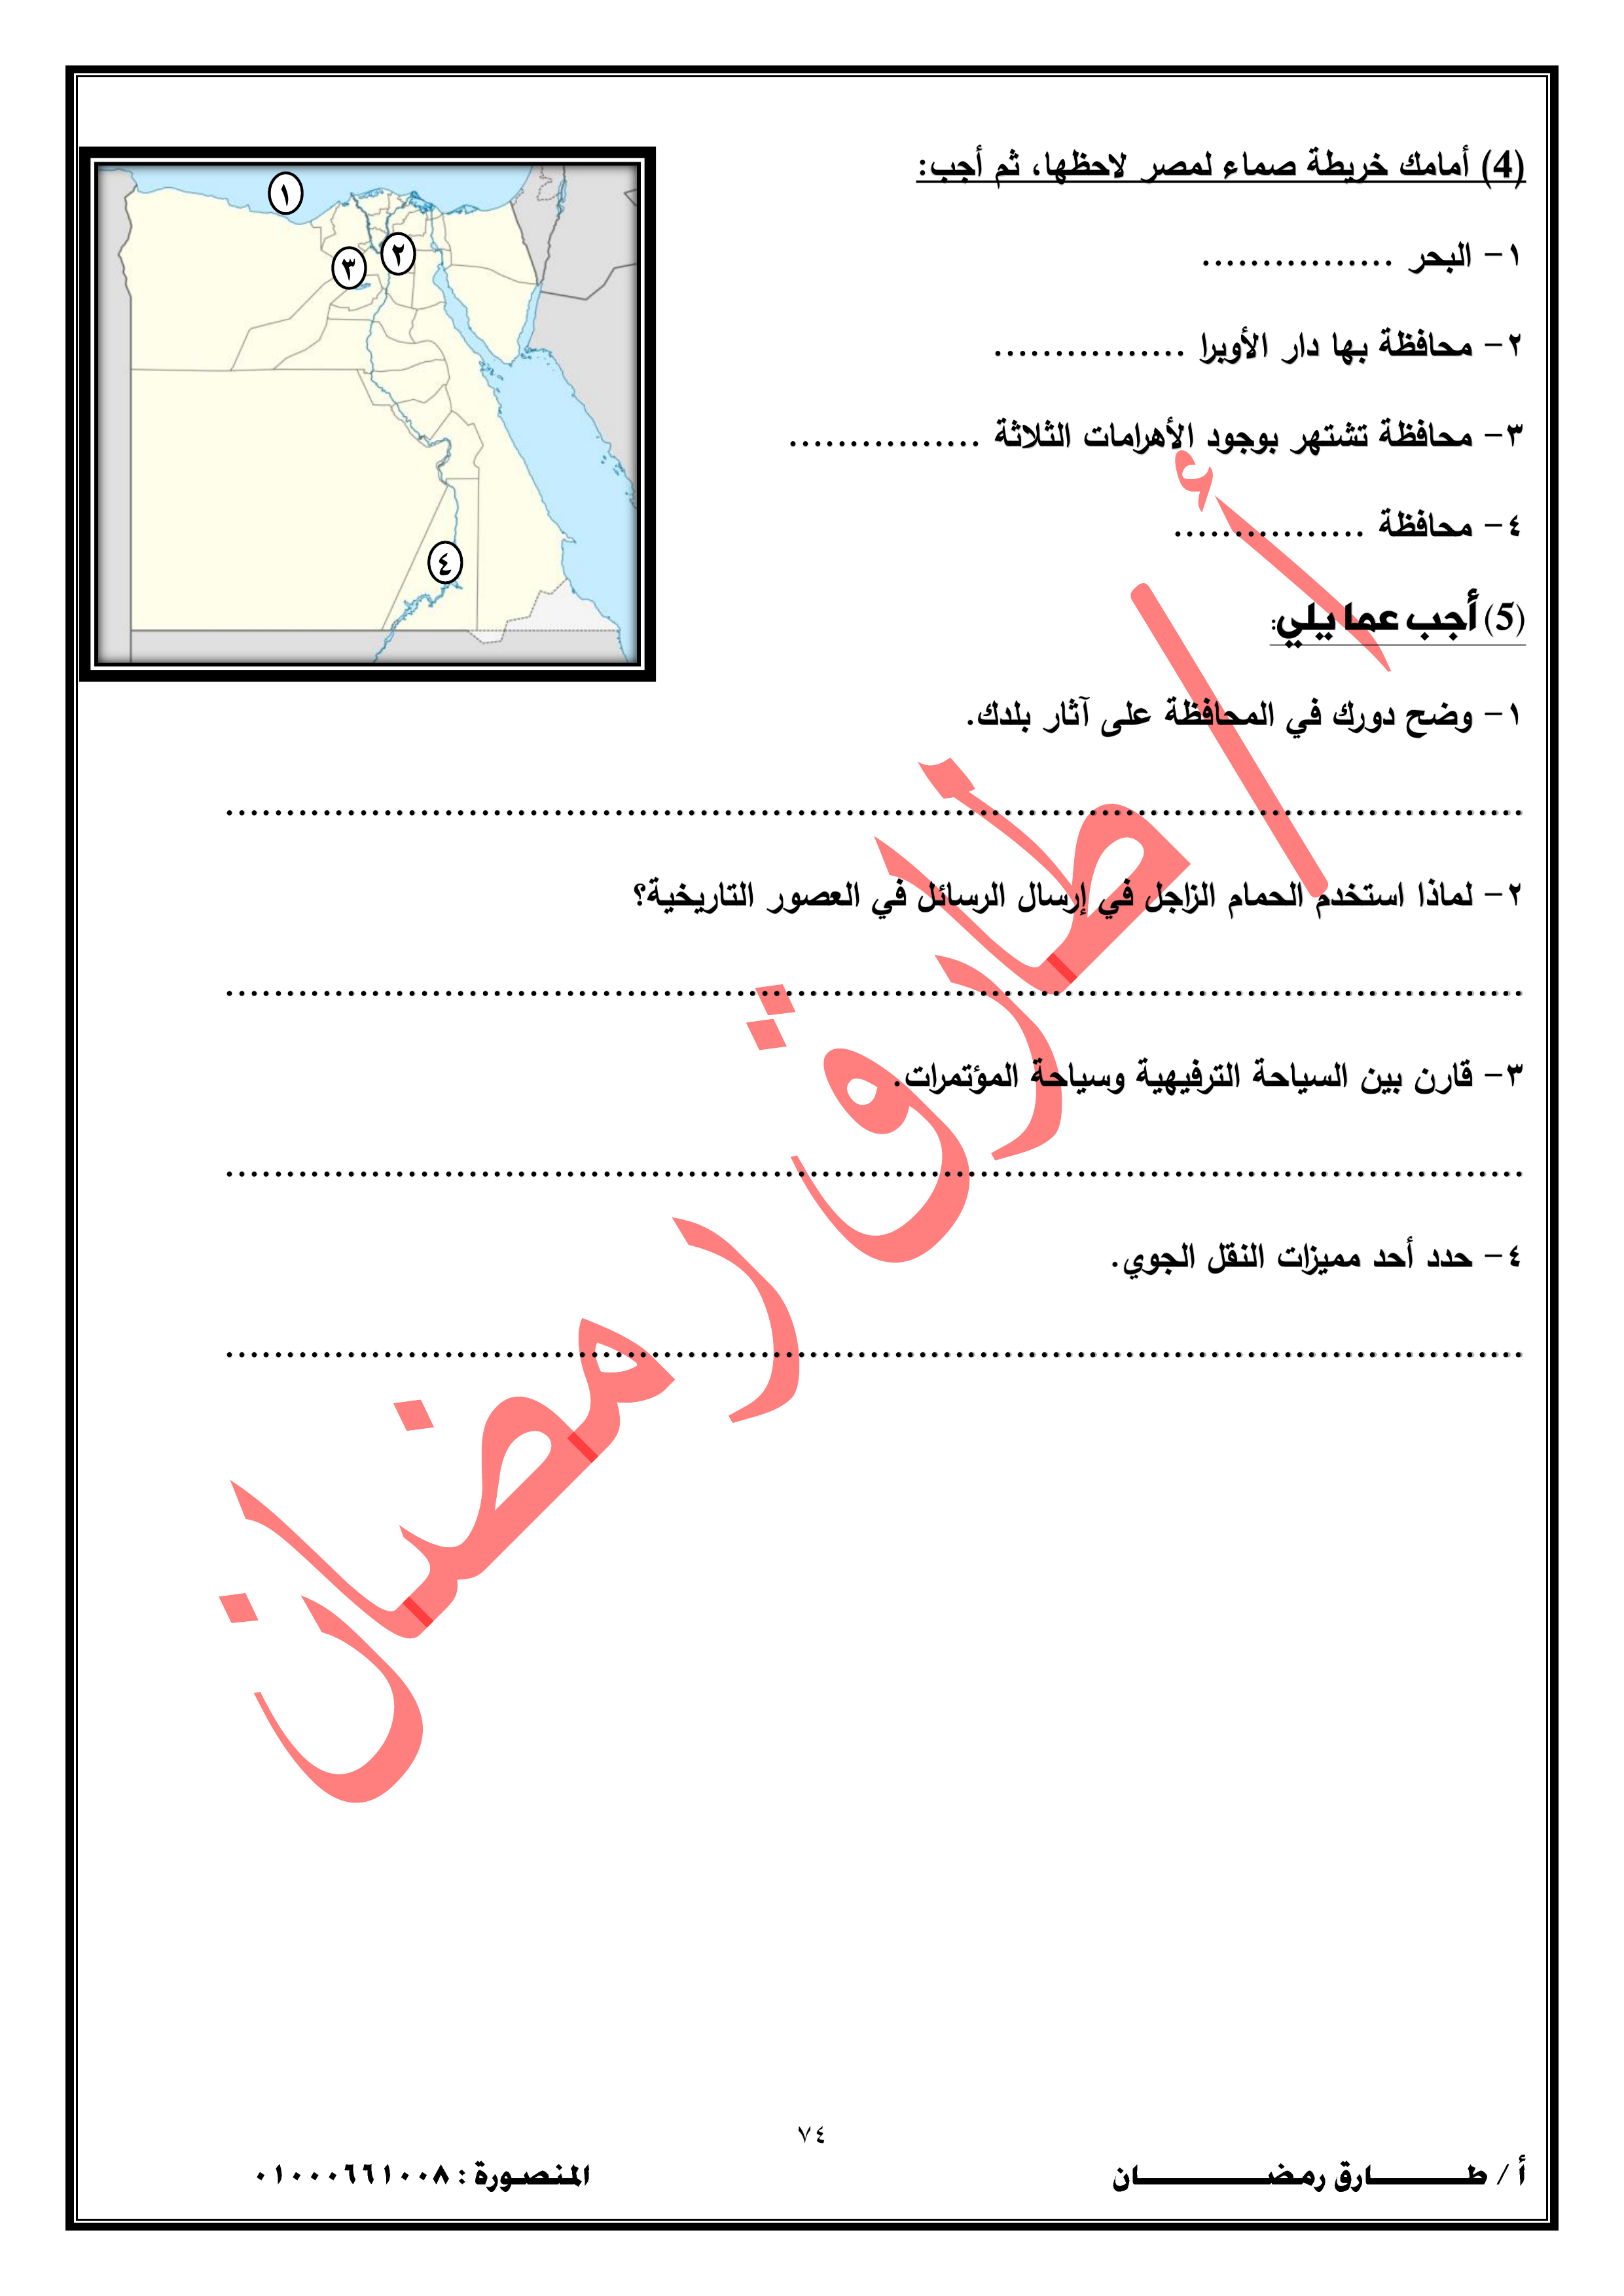 (4) أمامك خريطة صماء لمصر لاحظها، ثم أجب:
١
٢
٣
٤
١- البحر ................
٢- محافظة بها دار الأوبرا ................
٣- محافظة تشتهر بوجود الأهرامات الثلاثة ................
٤- محافظة ................
(5) أجب عما يلي:
١- وضح دورك في المحافظة على آثار بلدك.
................................................................................
٢- لماذا استخدم الحمام الزاجل في إرسال الرسائل في العصور التاريخية؟
................................................................................
٣- قارن بين السياحة الترفيهية وسياحة المؤتمرات.
................................................................................
٤- حدد أحد مميزات النقل الجوي.
................................................................................
أ / طارق رمضان
٧٤
أ / طـــــــارق رمضـــــــــان
المنصورة : ٠١٠٠٠٦٦١٠٠٨